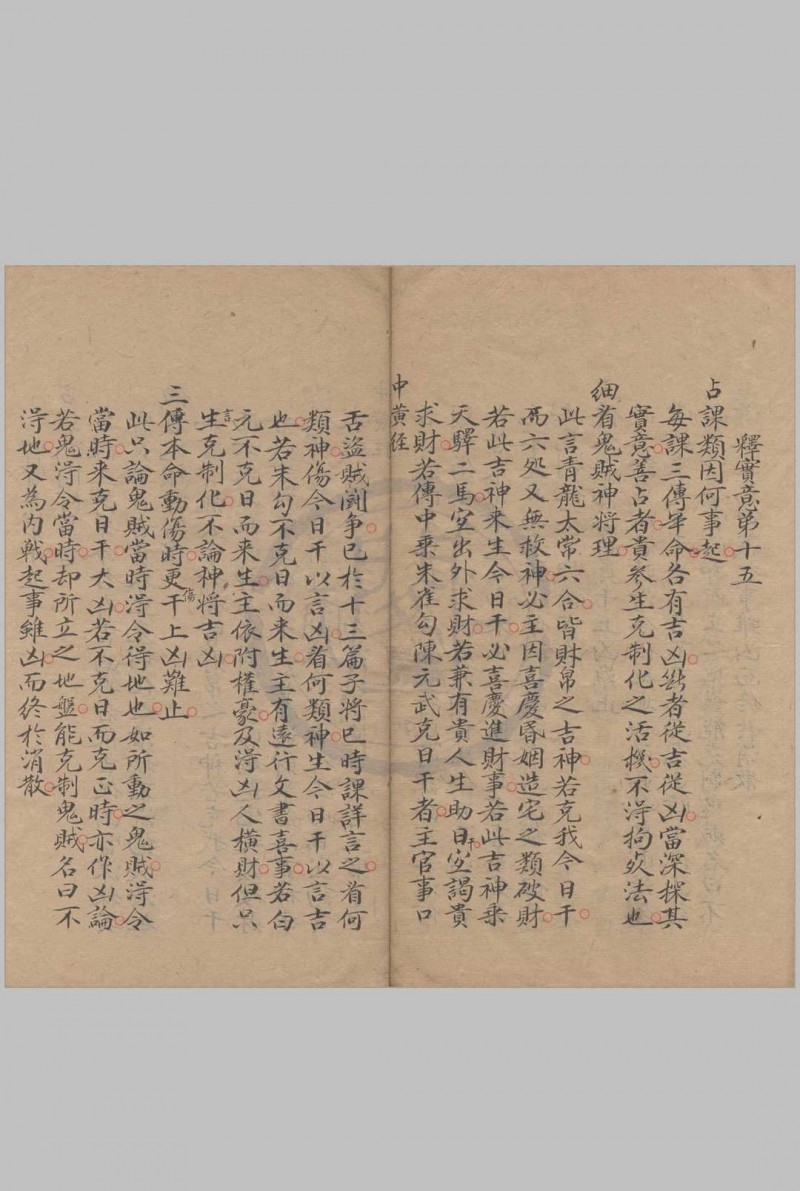 釋實意第十五
占課類因何事起
每課三傳年命各有吉凶然者從吉從凶當深探其
實意善占者貴參生克制化之活機不淂拘夾法也
細看鬼賊神將理
此言青龍太常六合皆財帛之吉神若克我今日干
而六処又無救神必主因喜慶昏姻造宅之類破財
若此吉神来生今日干必喜慶進財事若此吉神乗
天驛二馬宐出外求財若兼有貴人生助日干宐謁貴
求財若傳中乗朱雀勾陳元武克日干者主官事口
中黄経
舌盜賊鬪争已於十三篇子將已時課詳言之看何
類神傷今日干以言凶看何類神生今日干以言吉
也若朱勾不克日而来生主有遠行文書喜事若白
元不克日而来生主依附權豪及淂凶人横財但只
言生克制化不論神將吉凶
三傳本命動傷時更傷干上凶難止
此只論鬼賊當時淂令得地也如所動之鬼賊淂令
當時来克日干大凶若不克日而克正時亦作凶論
若鬼淂令當時却所立之地盤能克制鬼賊名曰不
淂地又為内戰起事雖凶而终於消散